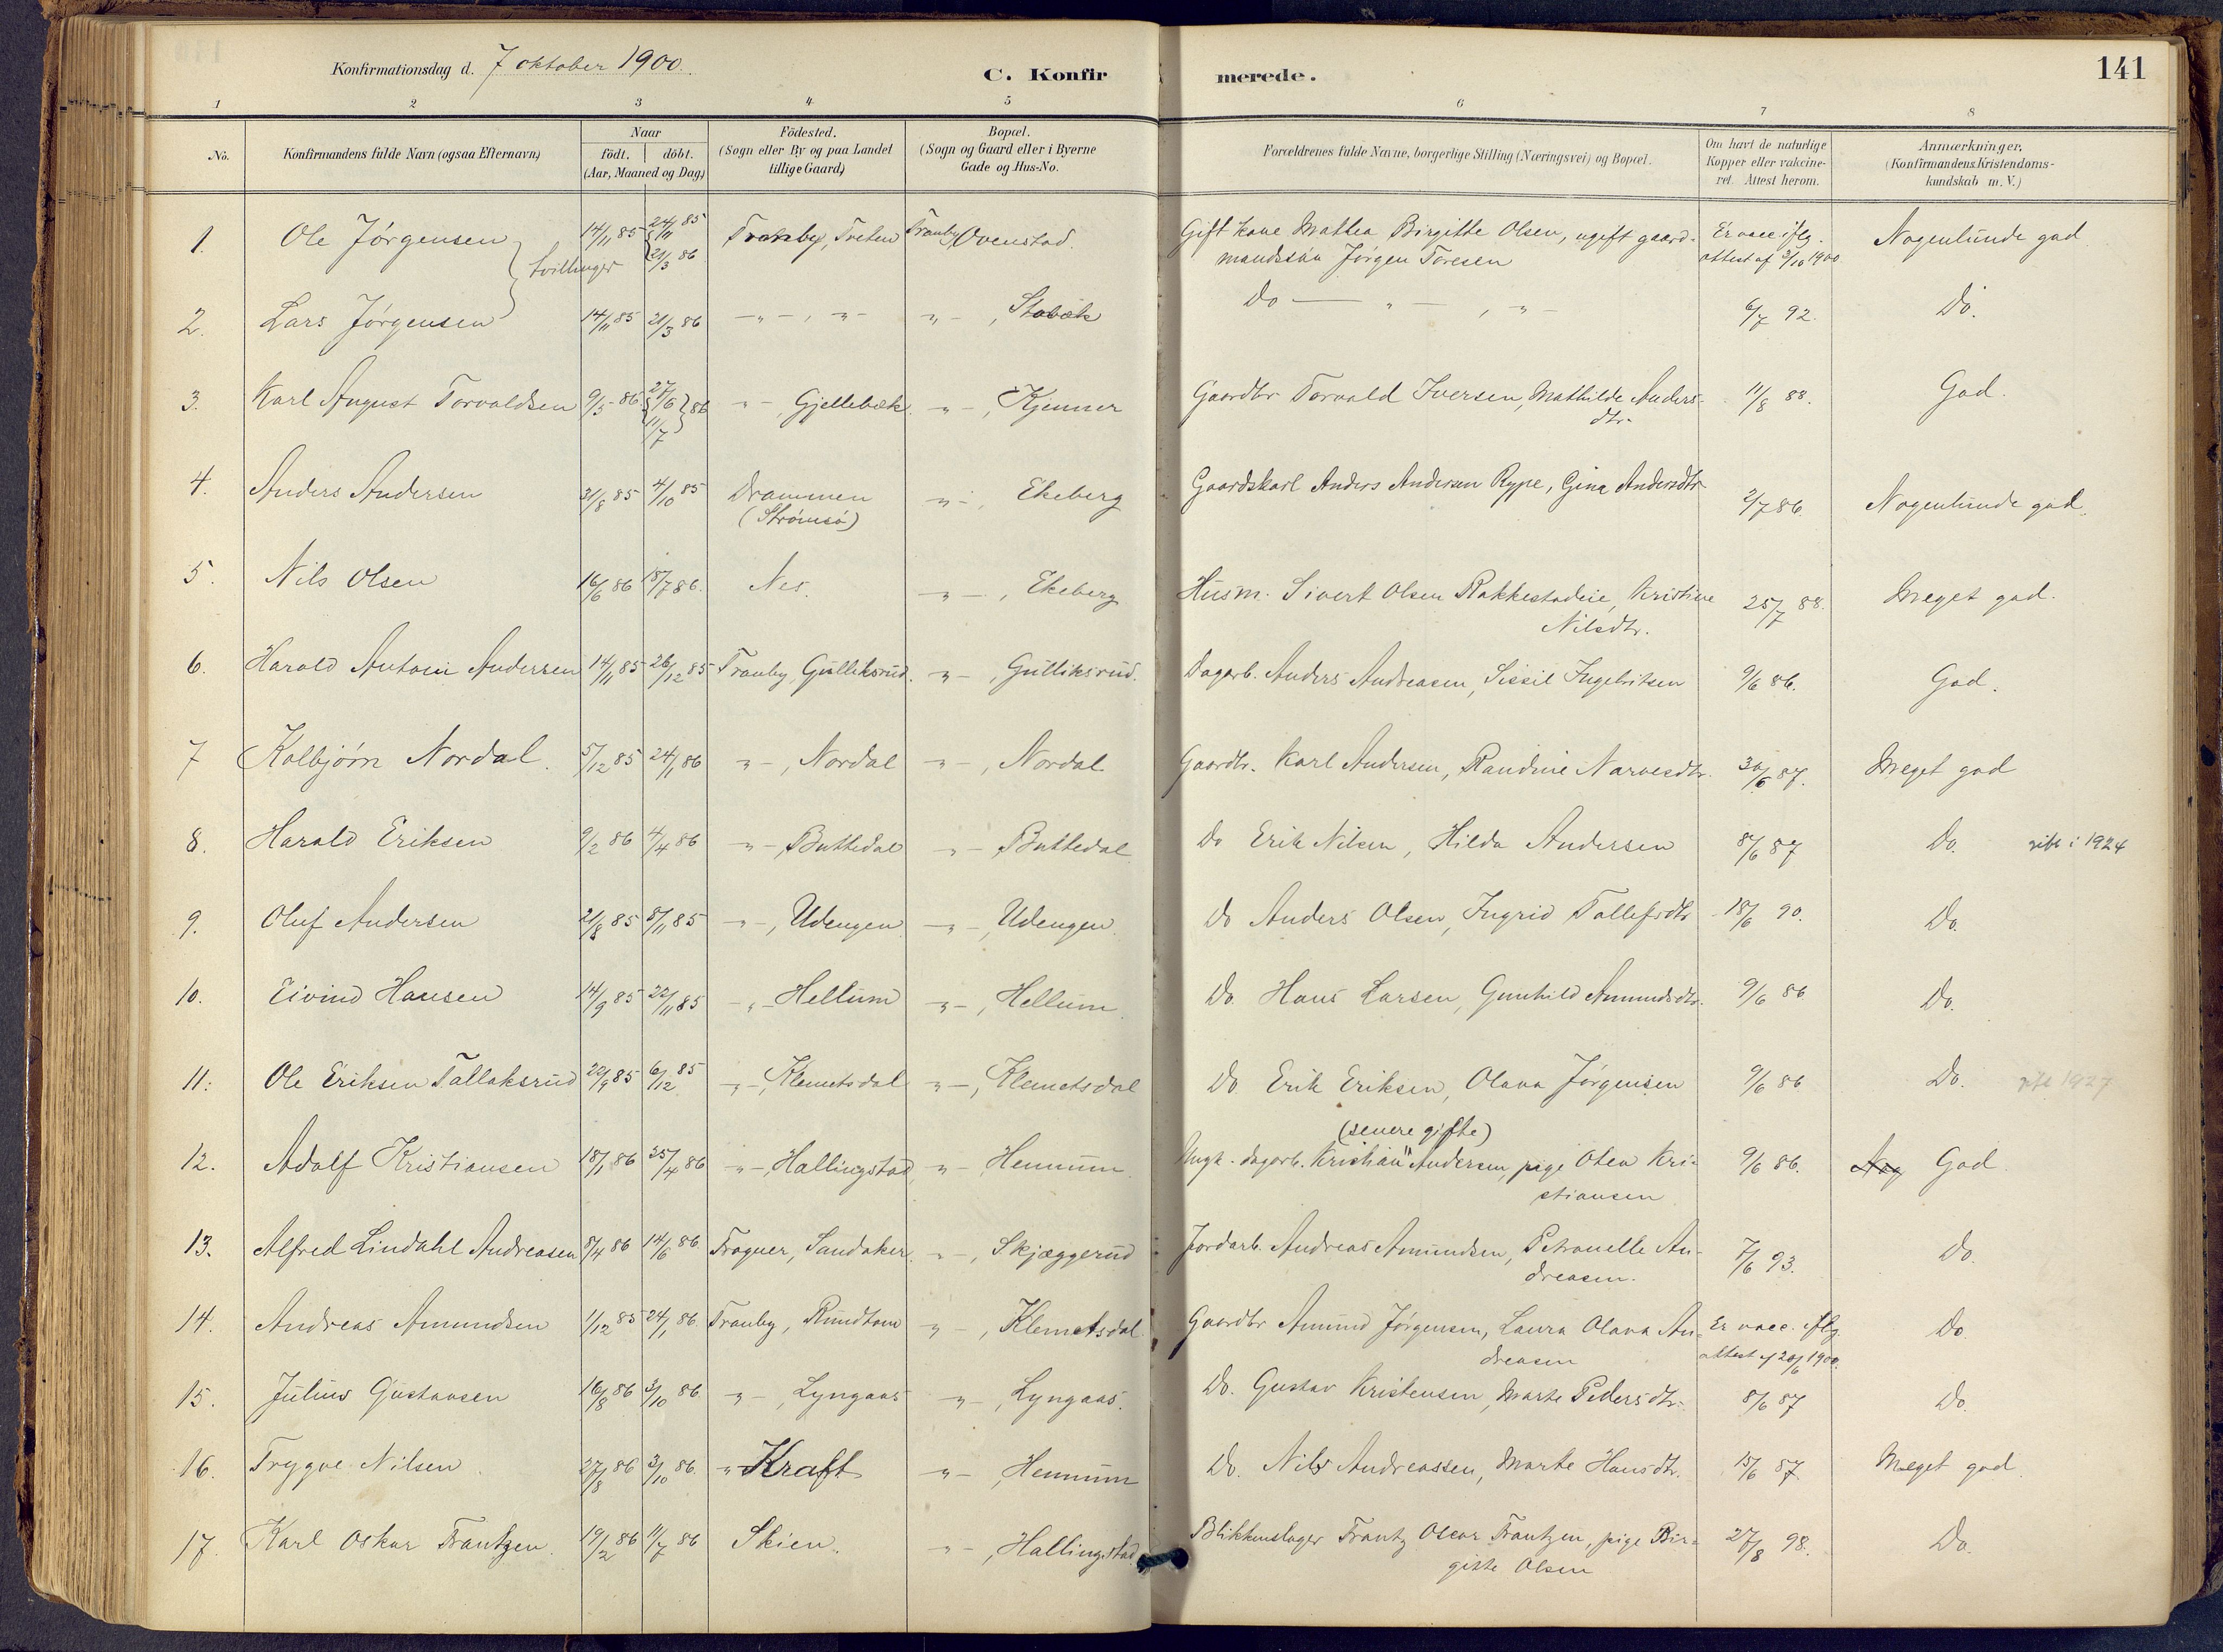 Konfirmationsdag d. 7 oktober 1900. C. Konfirmerede. 141
1 2 3 4 5 6 7 8
No. Konfirmandens fulde Navn (ogsaa Efternavn) Naar födt. döbt. (Aar, Maaned og Dag) Födested. (Sogn eller By og paa Landet tillige Gaard) Bopæl. (Sogn og Gaard eller i Byerne Gade og Hus-No. Forældrenes fulde Navne, borgerlige Stilling (Næringsvei) og Bopæl. Om havt de naturlige Kopper eller vakcineret. Attest herom. Anmærkninger. (Konfirmandens Kristendomskundskab m. V.)
1. Ole Jørgensen } tvillinger 14/11 85 { 24/11 85 21/3 86 Tranby, Treten Tranby, Ovenstad. Gift kone Mathea Birgitte Olsen, ugift gaard- Er vacc. iflg. Nogenlunde god
mandssøn Jørgen Toresen attest af 3/10 1900
2. Lars Jørgensen 14/11 85 21/3 86 - " - , - " - - " - , Stabæk Do — " — , - " - 6/7 92. Do.
3. Karl August Torvaldsen 9/5 86 { 27/6 11/7 } 86 " - , Gjellebæk " - , Kjenner Gaardbr Torvald Iversen, Mathilde Anders- 11/8 88. God.
dtr.
4. Anders Andersen 31/8 85 4/10 85 Drammen " - , Ekeberg Gaardskarl Anders Andersen Rype, Gina Andersdtr 2/7 86. Nogenlunde god.
(Strømsø)
5. Nils Olsen 16/6 86 18/7 86. Nes. - " - , Ekeberg Husm. Sivert Olsen Rakkestadeie, Kristine 25/7 88. Meget god.
Nilsdtr.
6. Harald Antoni Andersen 14/11 85 26/12 85 Tranby, Gulliksrud. - " - , Gulliksrud. Dagarb. Anders Andreasen, Sissil Ingebritsen 9/6 86. God.
7 Kolbjørn Nordal. 5/12 85 24/1 86 " - , Nordal " - , Nordal Gaardbr. Karl Andersen, Randine Narvesdtr. 30/6 87. Meget god
8. Harald Eriksen 9/2 86 4/4 86 " - , Buttedal " - Buttedal Do Erik Nilsen, Hilda Andersen 8/6 87 Do. i 1924
9. Oluf Andersen 21/8 85 8/11 85 " - , Udengen. - " - , Udengen Do Anders Olsen, Ingrid Tollefsdtr 18/6 90. Do.
10. Eivind Hansen 14/9 85 22/11 85 - " - Hellum " - , Hellum. Do. Hans Larsen, Gunhild Amundsdtr. 9/6 86 Do.
11. Ole Eriksen Tallaksrud 22/9 85 6/12 85 - " - , Klemetsdal " - , Klemetsdal Do. Erik Eriksen, Olava Jørgensen 9/6 86 Do. 1927
(senere gifte)
12. Adolf Kristiansen 18/1 86 25/4 86 " - , Hallingstad " - Hennum. Ungk. dagarb. Kristian Andersen, pige Oten Kri- 9/6 86. Nog God
stiansen
13. Alfred Lindahl Andreasen 8/4 86 14/6 86 Trogner, Sandaker. " - , Skjæggerud Jordarb. Andreas Amundsen, Petronelle An- 7/6 93. Do.
dreasen.
14. Andreas Amundsen 1/12 85 24/1 86. Tranby, Rundtom " - , Klemetsdal. Gaardbr Amund Jørgensen, Laura Olava An- Er vacc. iflg. Do.
dreasen attest af 20/6 1900.
15. Julius Gustavsen 16/8 86 3/10 86 " - , Lyngaas " - , Lyngaas. Do. Gustav Kristensen, Marte Pedersdtr. 8/6 87 Do.
16. Trygve Nilsen 27/8 86 3/10 86. " - Kraft " - , Hennum Do. Nils Andreassen, Marte Hansdtr. 15/6 87. Meget god.
17. Karl Oskar Frantzen. 19/2 86 11/7 86 Skien. " - , Hallingstad Blikkenslager Frantz Oscar Frantzen, pige Bir- 27/8 98. Do.
gitte Olsen